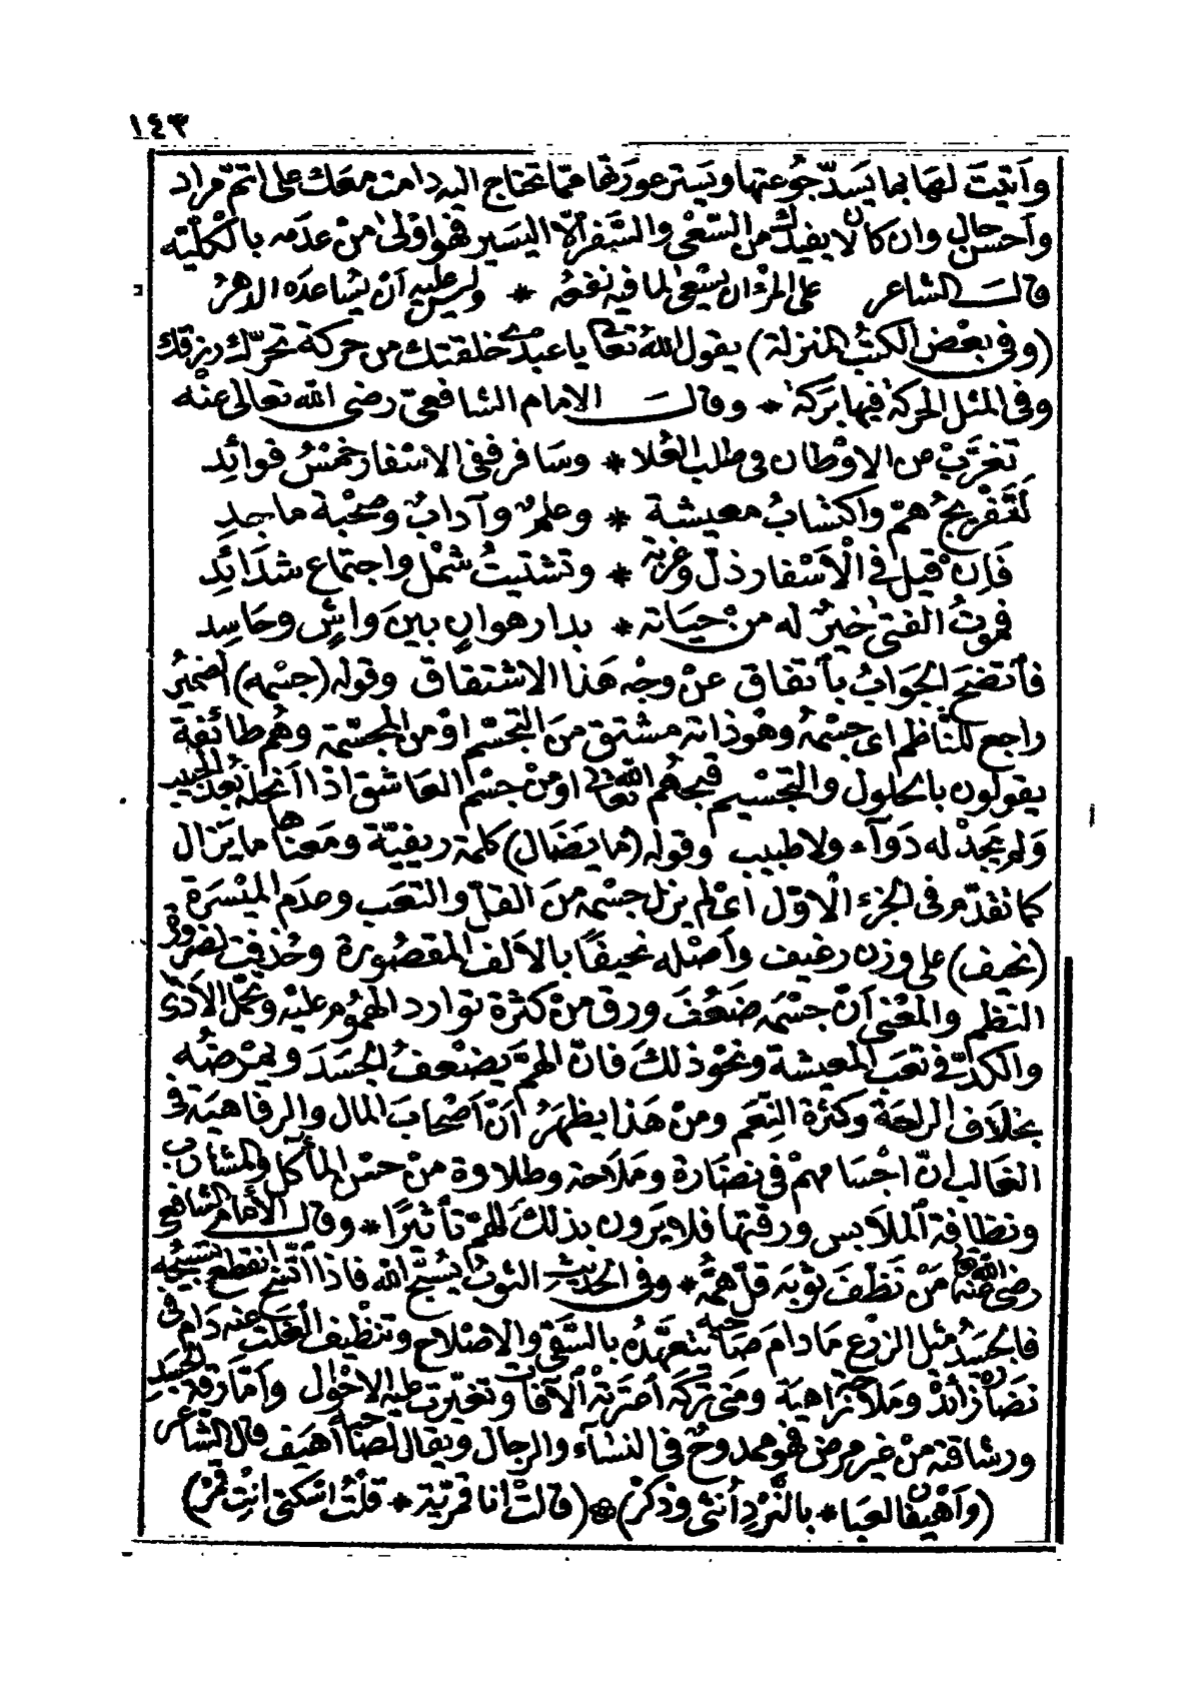 ١٤٣
وأتيت لها بما يسدّ جوعتها ويستر عورتها ممّا تحتاج اليه دامت معك على اتمّ مراد
وأحسن حال وان كان لا يفيدك من السّعى والسّفر الّا اليسير فهو اولى من عدمه بالكليّة
قال الشاعر على المرء ان يسعى لما فيه نفعه * وليس عليه أن يساعده الدهر
(وفى بعض الكتب المنزلة) يقول الله تعالى يا عبدى خلقتك من حركة تحرّك ارزقك
وفى المثل الحركة فيها بركة * وقال الامام الشافعىّ رضى الله تعالى عنه
تغرّب عن الاوطان فى طلب العُلا * وسافر ففى الاسفار خمسُ فوائد
لَتَفريجُ همّ واكتسابُ معيشة * وعلمٌ وآدابٌ وصحبة ماجد
فَاِن قيل فى الأسفار ذلّ وغربة * وتشتيتُ شمل واجتماع شدائد
فموتُ الفتى خيرٌ له من حياته * بدار هوانٍ بين واشٍ وحاسد
فأتضح الجوابُ بأتفاق عن وجه هذا الاشتقاق وقوله (جسمه) الضميرُ
راجع للناظم اى جسمهُ وهو ذاته مشتق من التجسّم او من المجسّمة وهُم طائفة
يقولون بالحلول والتجسيم قبحهُم الله تعالى او من جسم العاشق اذا أنحله بُعد الحبيب
ولم يجد له دوآء ولا طبيب وقوله (ما يضال) كلمة ريفيّة ومعناها ما يزال
كما تقدّم فى الجزء الاوّل أى لم يزل جسمه من القلّ والتعب وعدم الميسرة
(نحيف) على وزن رغيف وأصله نحيفًا بالألف المقصورة وحُذفت لضرورة
النظم والمعنى أنّ جسمَه ضَعُفَ ورق من كثرة توارد الهموم عليه وتحمّل الأذى
والكدّ فى تعب المعيشة ونحو ذلك فانّ الهمّ يضعفُ الجسد ويمرضُه
بخلاف الراحة وكثرة النِّعم ومن هذا يظهرُ أنّ أصحابَ المال والرفاهية فى
الغالب انّ اجسامهم فى نضارة وملاحة وطلاوة من حسن المأكل والمشارب
ونظافة ألملابس ورقتها فلا يَرون بذلك للهمّ تأثيرًا * وقال الأمام الشافعى
رضى الله تعالى عنه من نظّف ثوبَه قلّ همُّه * وفى الحديث الثوبُ يسبّح الله فاذا اتّسخ انقطع تسبيحه
فالجسدُ مثل الزرع ما دام صاحبه يتعهّدهُ بالسّقى والاصلاح وتنظيف الغلت عنه دام فى
نضارة زائدة وملاحة زاهية ومتى تركه اعترته الآفات وتغيّرت عليه الاحوال وأمّا رقة الجسد
ورشاقته من غير مرض فهو ممدوحٌ فى النساء والرجال ويقال لصاحبه أهيف قال الشاعر
(وأهيفان لعبا * بالنّرد أنثى وذكر) * (قالت انا قمريّة * قلتُ اسكتى انتِ قمر)